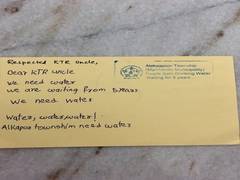 Respected KTR uncle,
Dear KTR uncle
we need water
we are waiting from 5 years
we need water
Water, water, water!
Alkapur township need water
Alkapoor Township
(Manikonda Municipality)
People want Drinking Water
Waiting for 5 years